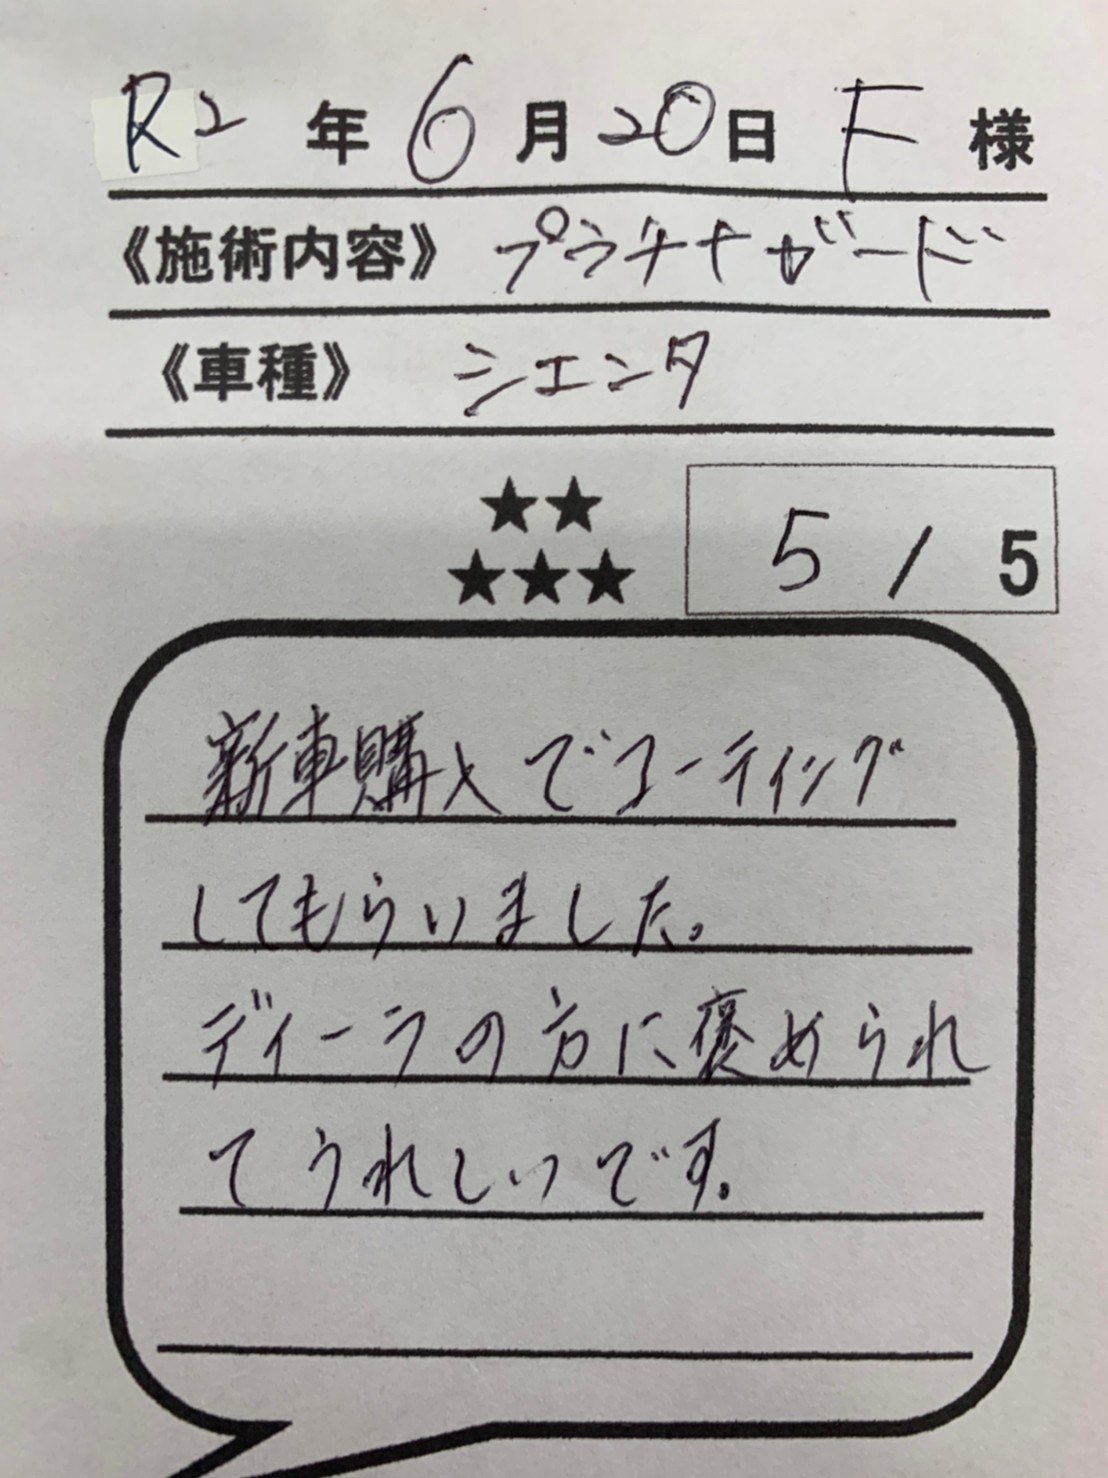 R2年6月20日 F様
《施術内容》 プラチナガード
《車種》 シエンタ
★★
★★★ 5/5
新車購入でコーティング
してもらいました。
ディーラの方に褒められ
てうれしいです。